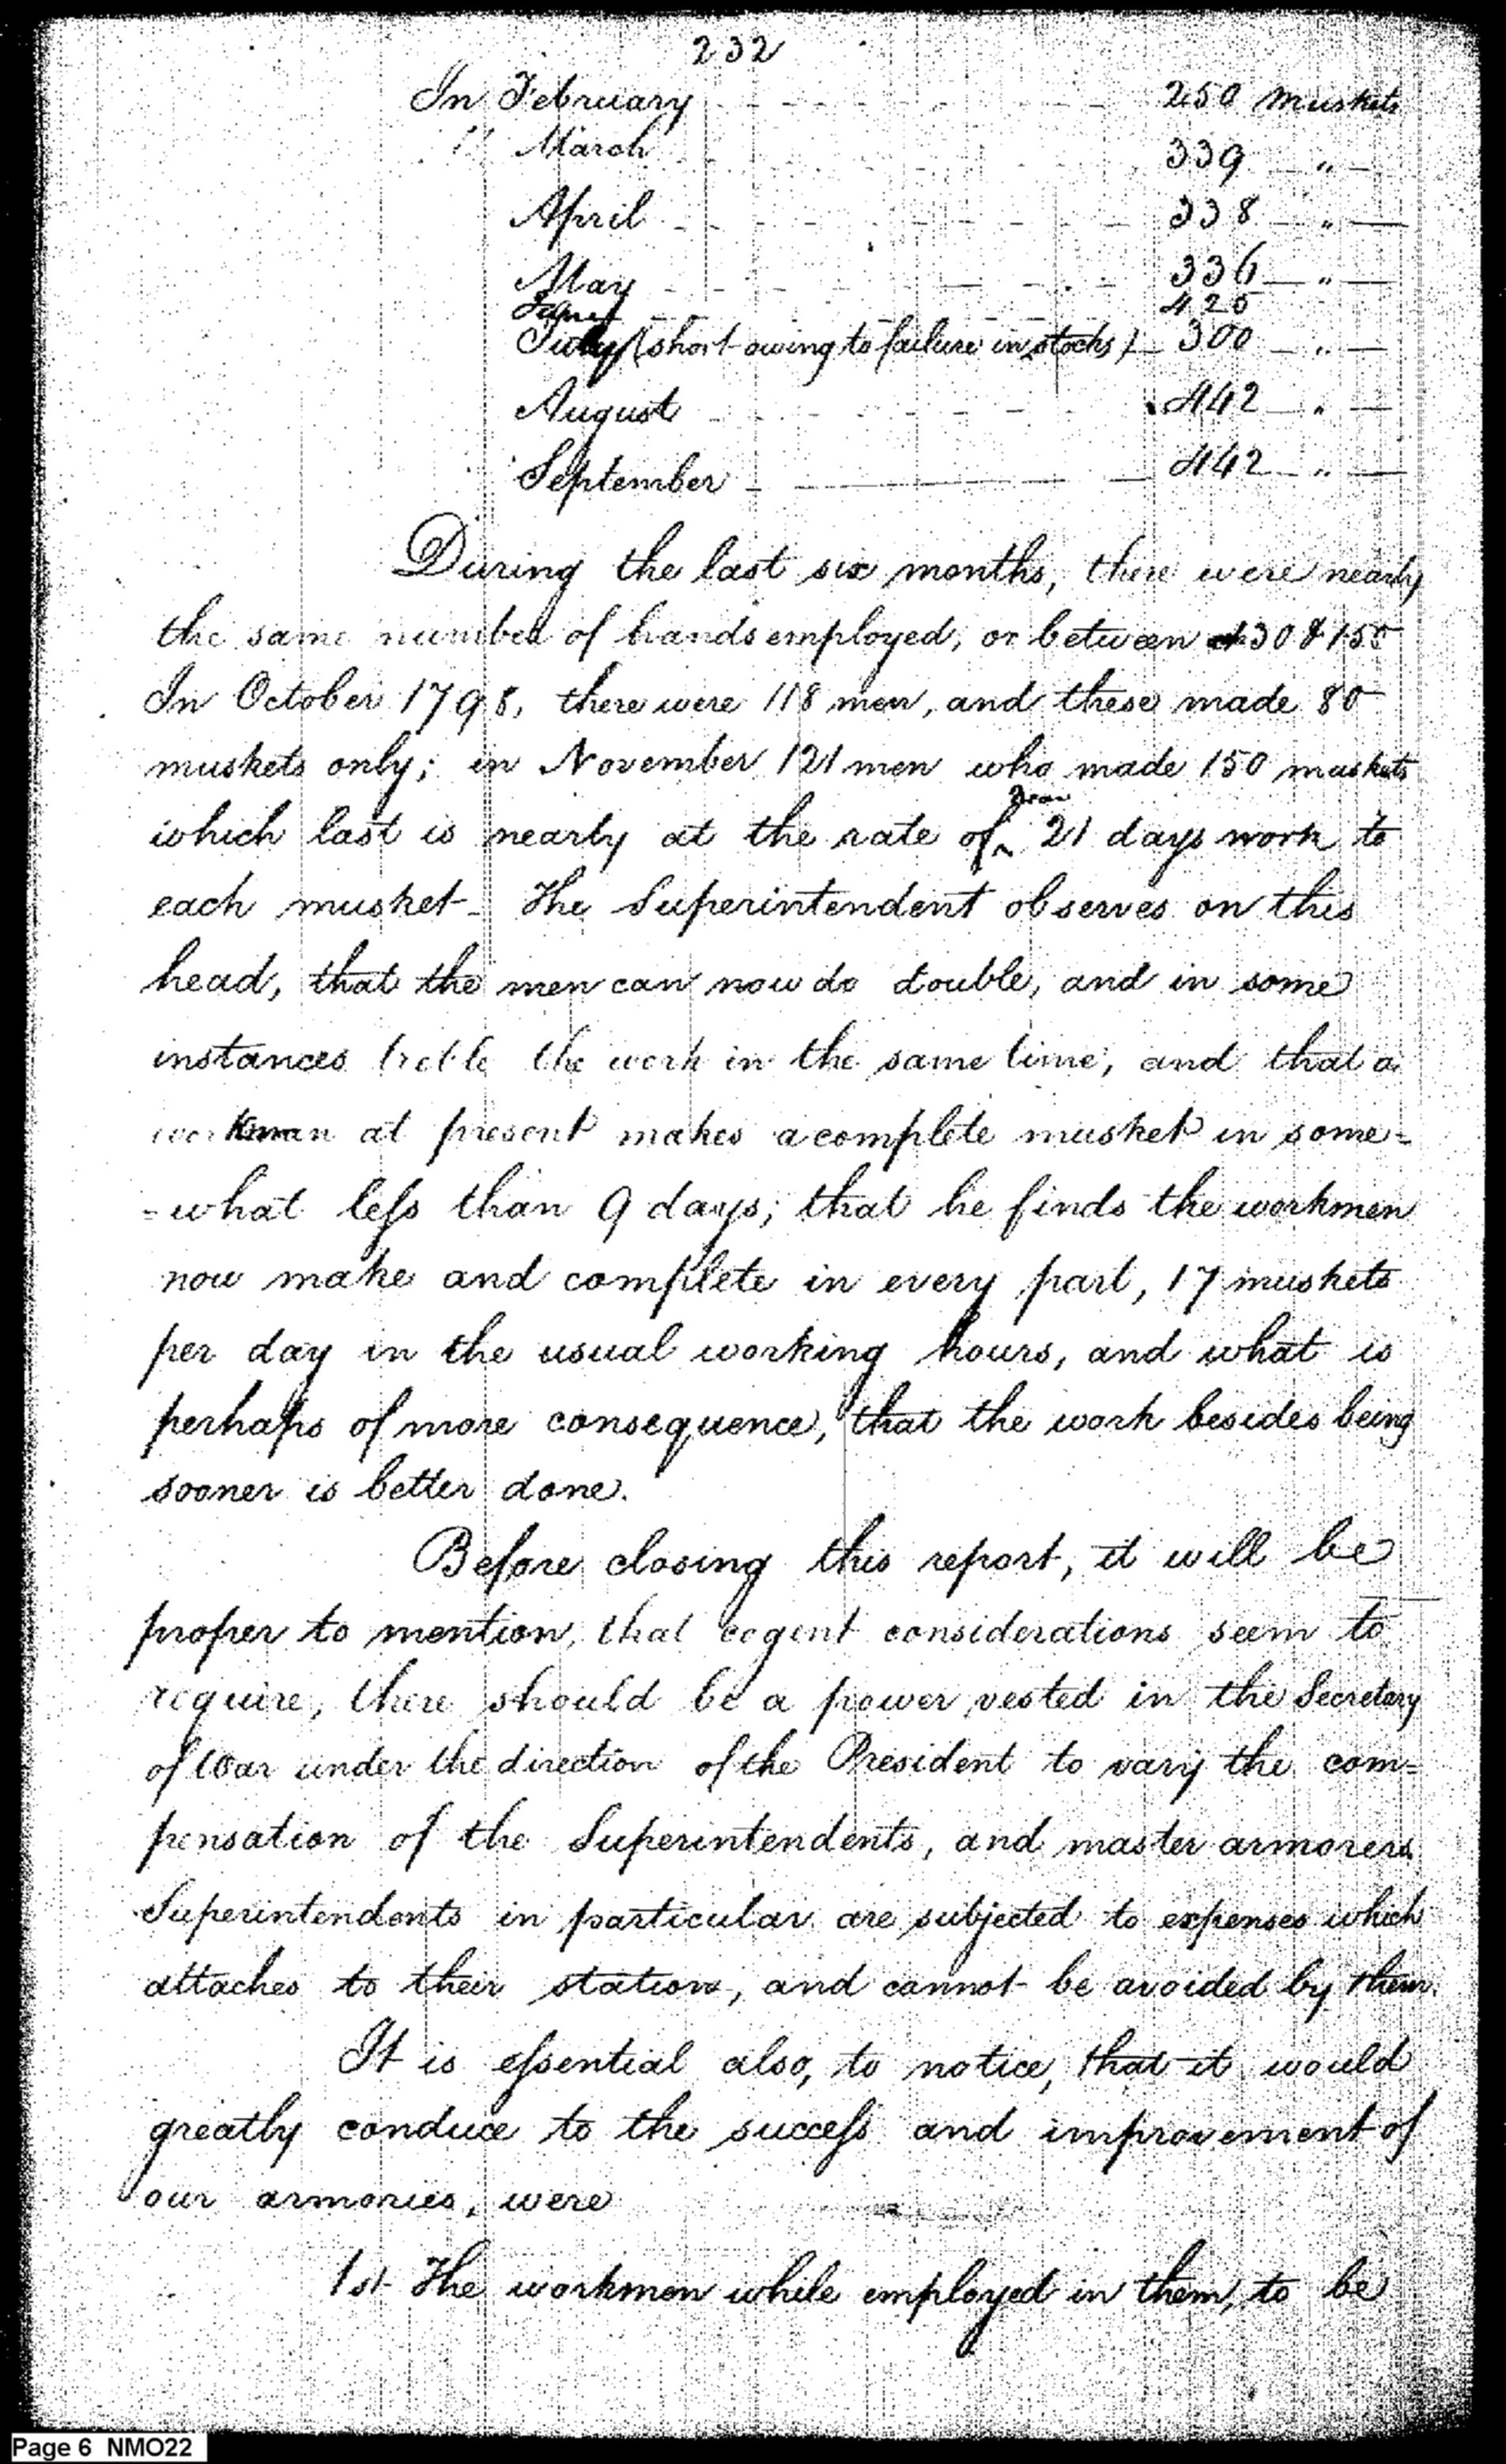 232
In February - - - - - - 250 muskets
" March - - - - - - 339 " —
April - - - - - - 338 " —
May - - - - - - 336 " —
June - - - - - - 425
July (short owing to failure in stocks) — 300 — " —
August - - - - - - 442 — " —
September - — — 442 — " —
During the last six months, there were nearly
the same number of hands employed, or between 130 & 150
In October 1798, there were 118 men, and these made 80
muskets only; in November 121 men who made 150 muskets
which last is nearly at the rate of 21 days work to
each musket - The Superintendent observes on this
head, that the men can now do double, and in some
instances treble the work in the same time, and that a
workman at present makes a complete musket in some=
=what less than 9 days; that he finds the workmen
now make and complete in every part, 17 muskets
per day in the usual working hours, and what is
perhaps of more consequence, that the work besides being
sooner is better done.
Before closing this report, it will be
proper to mention, that cogent considerations seem to
require, there should be a power vested in the Secretary
of War under the direction of the President to vary the com=
pensation of the Superintendents, and master armorers
Superintendents in particular are subjected to expenses which
attaches to their station, and cannot be avoided by them.
It is essential also, to notice, that it would
greatly conduce to the success and improvement of
our armories, were
1st The workmen while employed in them, to be
Page 6 NMO22